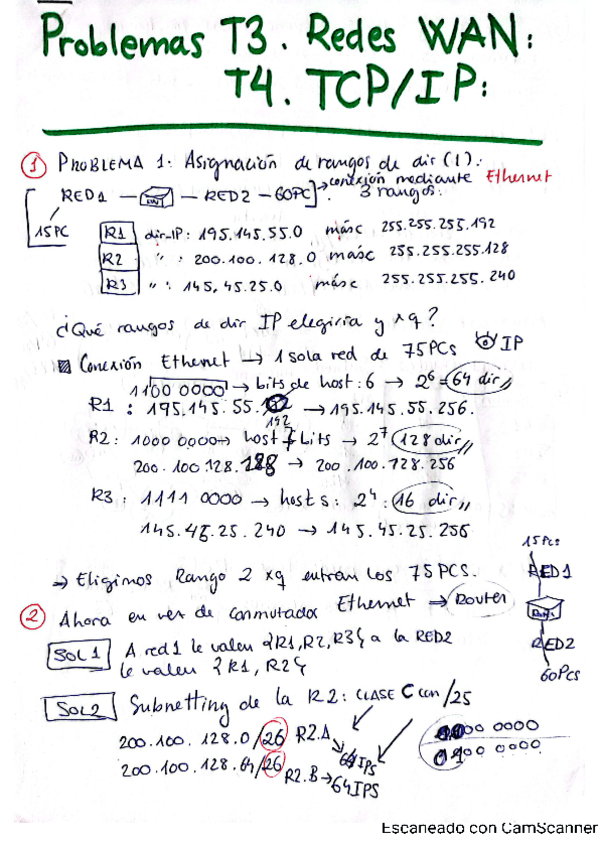 Problemas T3. Redes WAN:
T4. TCP/IP:
① PROBLEMA 1: Asignación de rangos de dir (1):
RED1 — — RED2 — 60PC] → conexión mediante Ethernet
3 rangos:
15PC
R1 dir_IP: 195.145.55.0 másc 255.255.255.192
R2 " " : 200.100.128.0 masc 255.255.255.128
R3 " : 145.45.25.0 másc 255.255.255.240
¿Qué rangos de dir IP elegiría y xq?
Conexión Ethernet → 1 sola red de 75PCs IP
1100 0000 → bits de host: 6 → 2^6 = 64 dir
R1 : 195.145.55. → 195.145.55.256.
192
R2: 1000 0000 → host 7 bits → 2^7 128 dir
200.100.128.128 → 200.100.128.256
R3: 1111 0000 → hosts: 2^4: 16 dir
145.45.25.240 → 145.45.25.256
→ Eligimos Rango 2 xq entran los 75PCS.
15PCs
RED1
② Ahora en vez de conmutador Ethernet → Router
RED2
60PCs
SOL1 A red1 le valen {R1,R2,R3} a la RED2
le valen {R1, R2}
SOL2 Subnetting de la R2: CLASE C con /25
200.100.128.0/26 R2.A 64 IPS
200.100.128.64/26 R2.B → 64IPS
00 0000
0100 0000
Escaneado con CamScanner